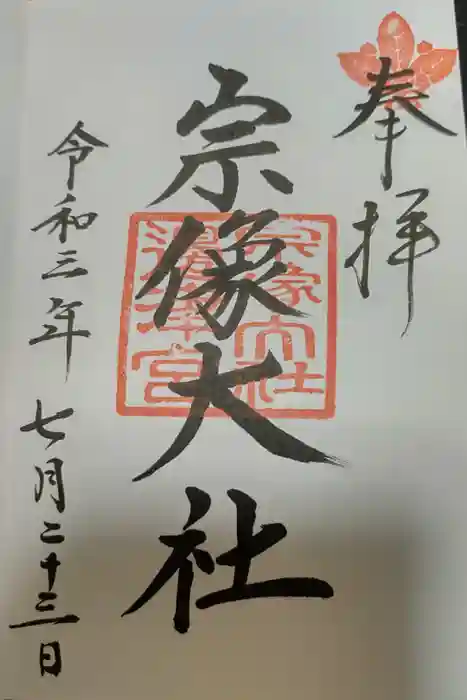 奉拝
宗像大社
宗像大社
邊津宮
令和三年七月二十三日